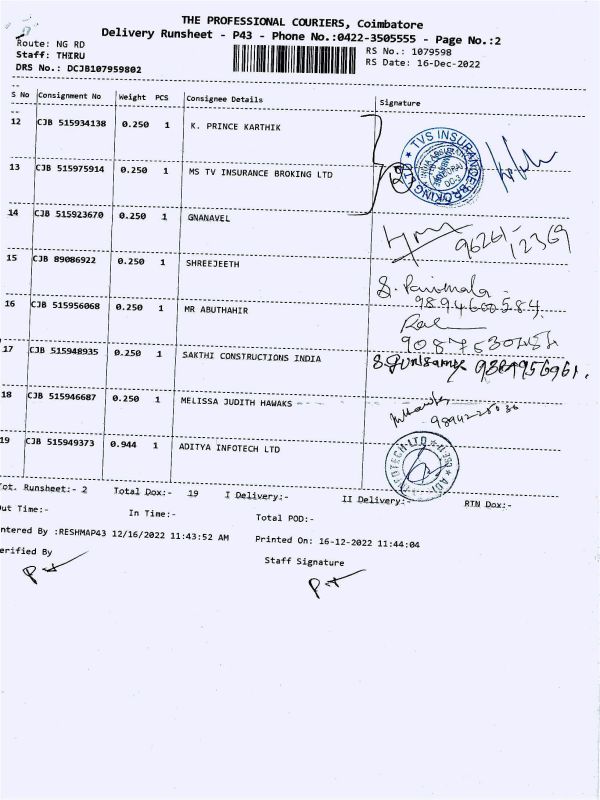 THE PROFESSIONAL COURIERS, Coimbatore
Delivery Runsheet - P43 - Phone No.:0422-3505555 - Page No.:2
Route: NG RD
RS No.: 1079598
Staff: THIRU
RS Date: 16-Dec-2022
DRS No.: DCJB107959802
S No Consignment No Weight PCS Consignee Details Signature
12 CJB 515934138 0.250 1 K. PRINCE KARTHIK
13 CJB 515975914 0.250 1 MS TV INSURANCE BROKING LTD
TVS INSURANCE BROKING LTD
14 CJB 515923670 0.250 1 GNANAVEL
96261-12369
15 CJB 89086922 0.250 1 SHREEJEETH
9894600584
16 CJB 515956068 0.250 1 MR ABUTHAHIR
17 CJB 515948935 0.250 1 SAKTHI CONSTRUCTIONS INDIA
18 CJB 515946687 0.250 1 MELISSA JUDITH HAWAKS
19 CJB 515949373 0.944 1 ADITYA INFOTECH LTD
INFOTECH LTD
Tot. Runsheet:- 2 Total Dox:- 19 I Delivery:- II Delivery:- RTN Dox:-
Out Time:- In Time:- Total POD:-
ntered By :RESHMAP43 12/16/2022 11:43:52 AM Printed On: 16-12-2022 11:44:04
erified By Staff Signature